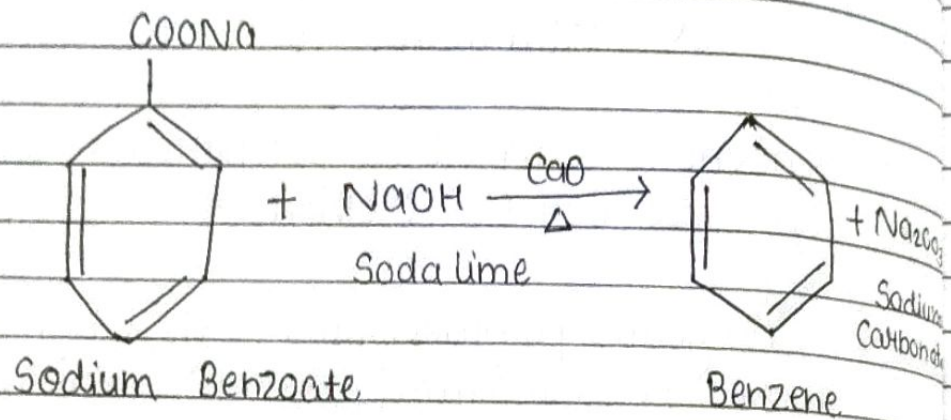 COONa
+ NaOH CaO Δ → + Na2CO3
Soda lime
Sodium
Carbonate
Sodium Benzoate
Benzene